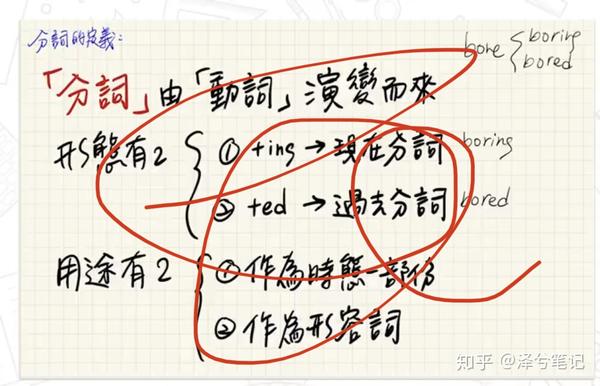 分詞的定義：
bone { boring
bored
「分詞」由「動詞」演變而來
形態有2 { ① +ing → 現在分詞 boring
② +ed → 過去分詞 bored
用途有2 { ① 作為時態一部份
② 作為形容詞
知乎 @泽兮笔记